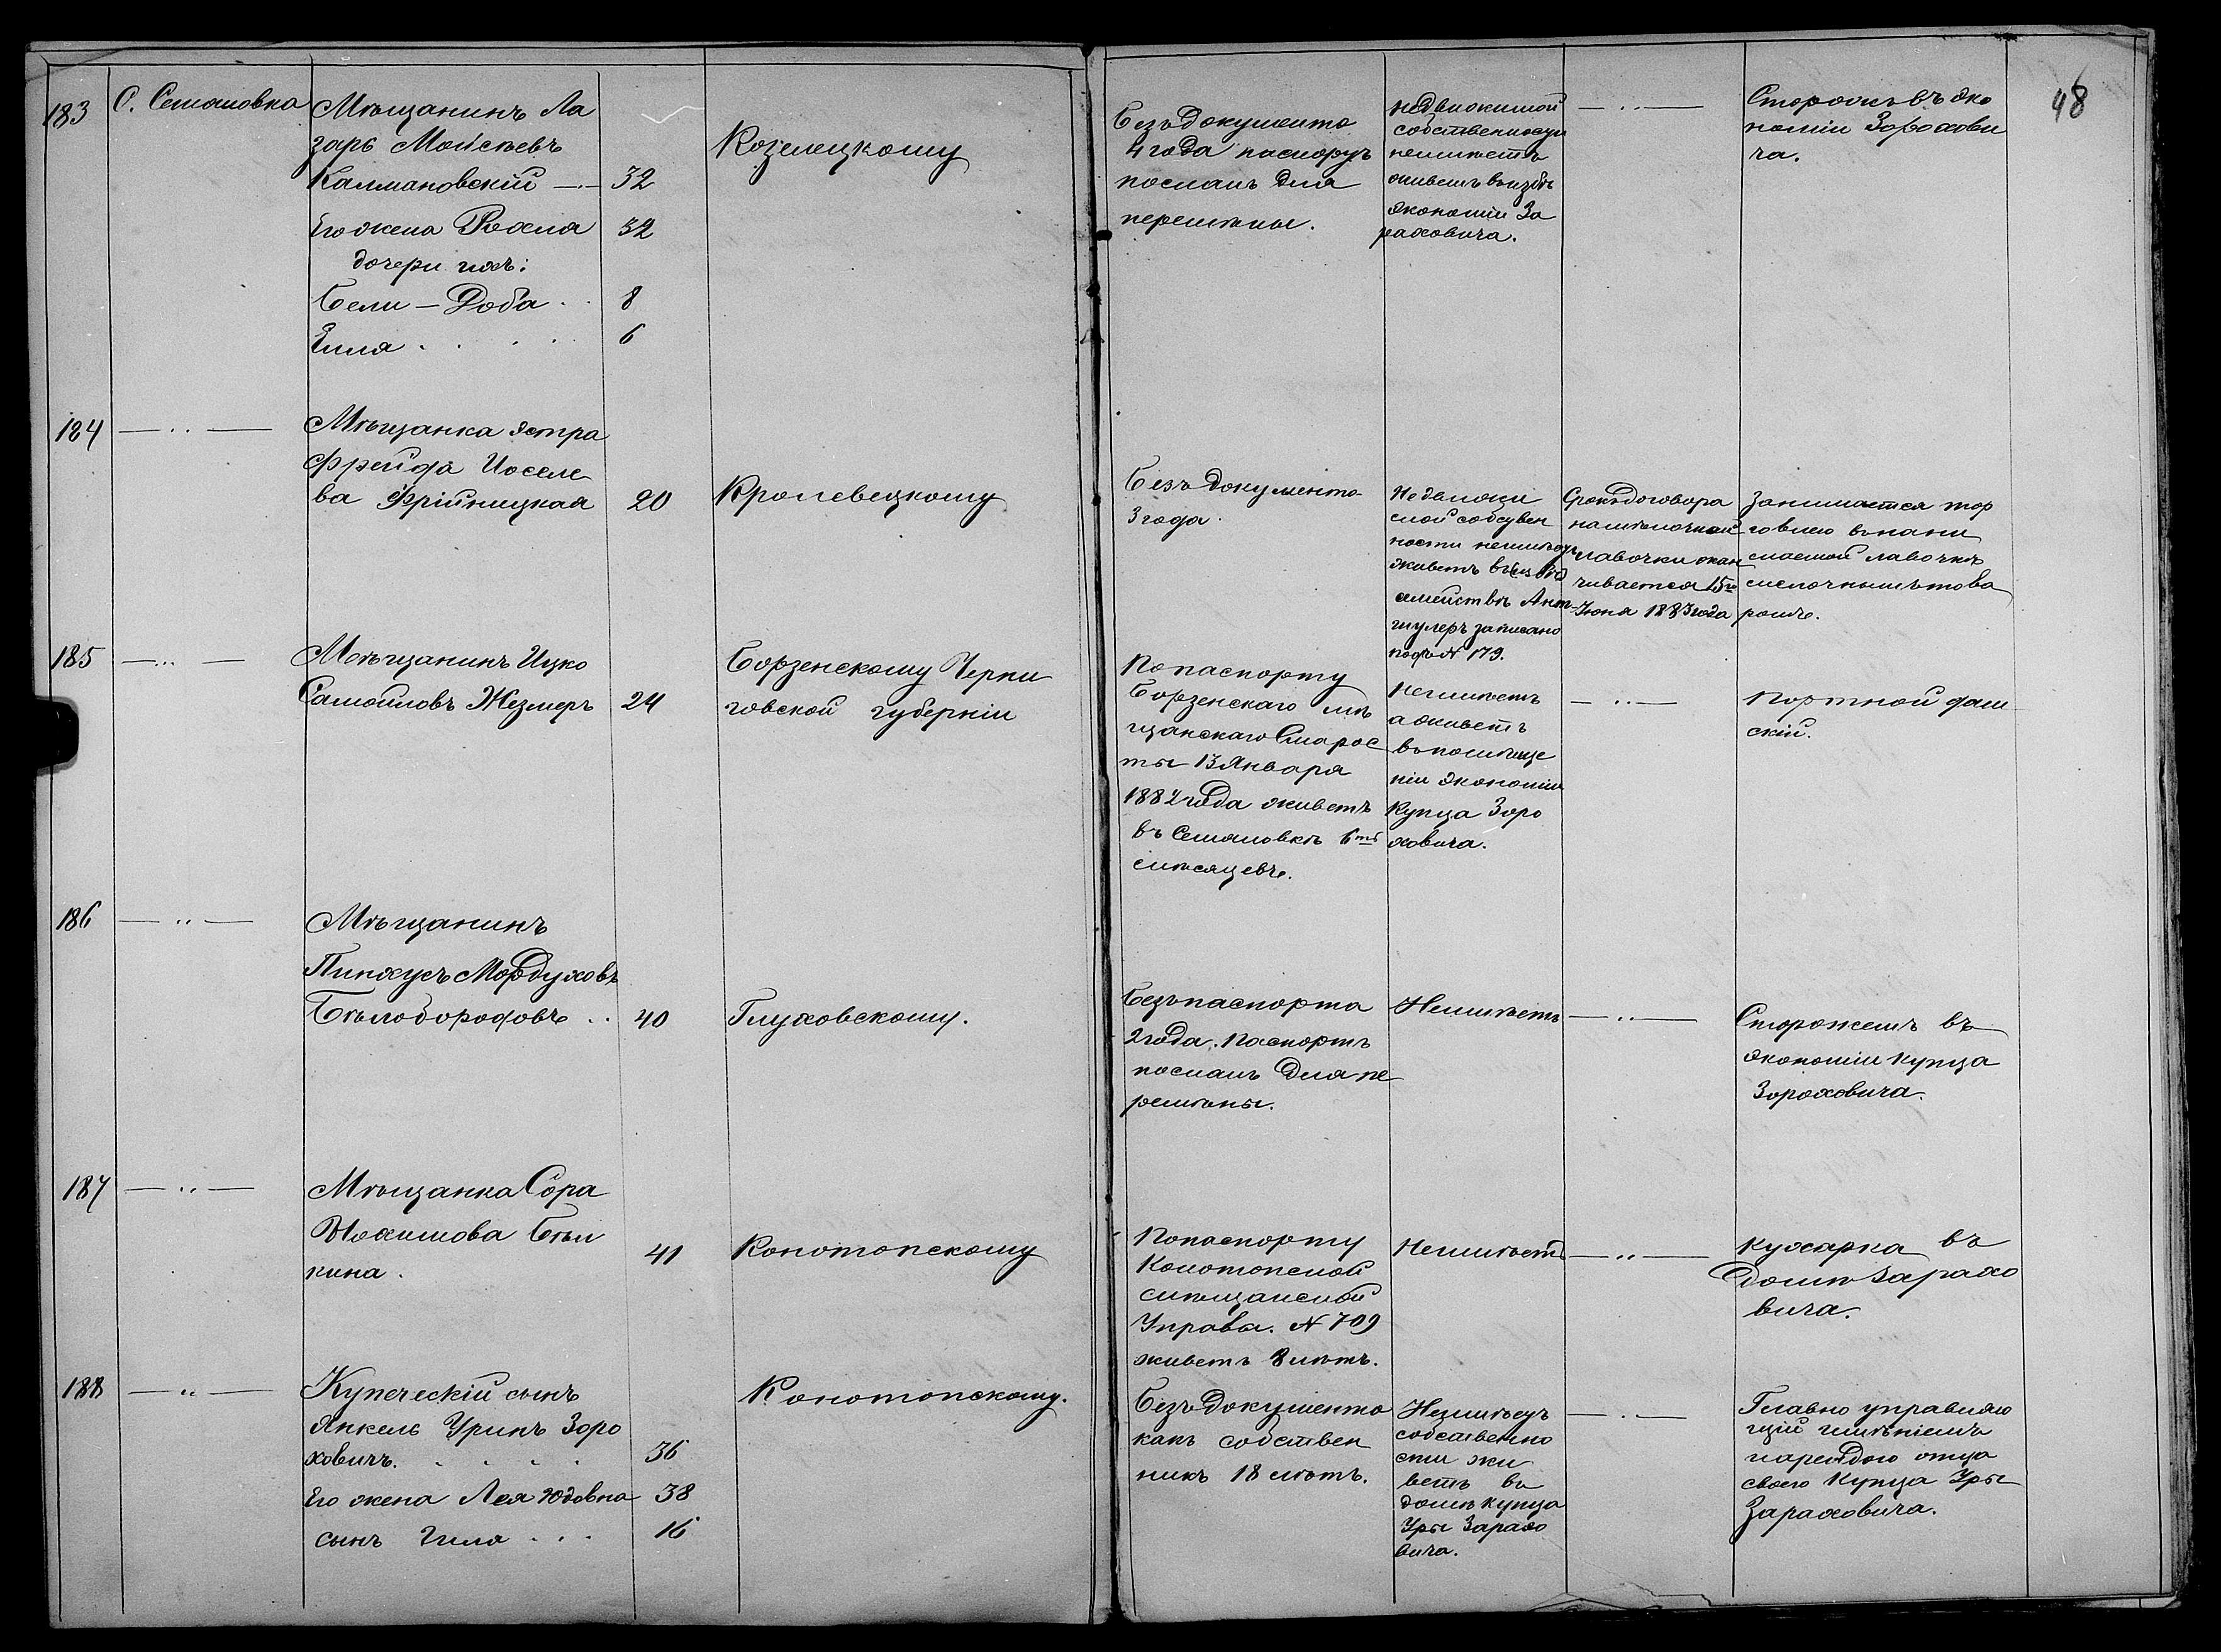 48
183
С. Семяновка
Мѣщанинъ Ла
зарь Моисѣевъ
Калмановскій — 32
Его жена Рохля 32
дочери ихъ:
Бели – Доба . . 8
Гиля . . . . . 6
Козелецкому
Безъ документа
4 года паспорт
посланъ для
перемѣны.
недвижимой
собственности
неимѣетъ
живетъ въ избѣ
экономіи За
раховича.
— .. —
Сторожъ въ эко
номіи Зорохови
ча.
184 — .. —
Мѣщанка Эстра
Фрейда Иоселе
ва 20
Кролевецкому
Безъ документа
3 года.
собствен
ности неимѣетъ
живетъ въ
семействѣ Аль
шулеръ записано
подъ N 179.
Срокъ договора
на мѣлочной
лавочки окан
чивается 15го
Июня 1883 года
Занимается тор
говлею въ нани
маемой лавочкѣ
мелочнымъ това
ромъ.
185 — .. —
Мѣщанинъ Ицко
Самойловъ Жезмеръ 24
Борзенскому Черни
говской губерніи
По паспорту
Борзенскаго мѣ
щанскаго Старос
ты 13 Января
1882 года живетъ
въ Семяновкѣ 6ть
мѣсяцевъ.
Неимѣетъ
а живетъ
въ помѣще
ніи экономіи
Купца Заро
ховича.
— .. —
Портной дам
скій.
186 — .. —
Мѣщанинъ
Пинхусъ Мордуховъ
Бѣлобородовъ . . 40
Глуховскому.
Безъ паспорта
2 года. Паспортъ
посланъ для пе
ремѣны.
Неимѣетъ
— .. —
Сторожемъ въ
экономіи купца
Зороховича.
187 — .. —
Мѣщанка Сора
Нохимова Бѣл
кина. 41
Конотопскому
По паспорту
Конотопской
мѣщанской
Управы. N 709
живетъ 8 лѣтъ.
Неимѣетъ
— .. —
Кухарка въ
домѣ Зарахо
вича.
188 — .. —
Купеческій сынъ
Янкель Уринъ Зоро
ховичъ. . . . . 36
Его жена Лея Юдовна 38
сынъ Гиля . . . 16
Конотопскому.
Безъ документа
какъ собствен
никъ 18 лѣтъ.
Неимѣетъ
собственно
сти жи
ветъ въ
домѣ купца
Уры Зарахо
вича.
— . —
Главно управляю
щій имѣніемъ
арендою отца
своего Купца Уры
Зараховича.